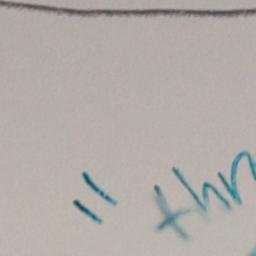 " thr